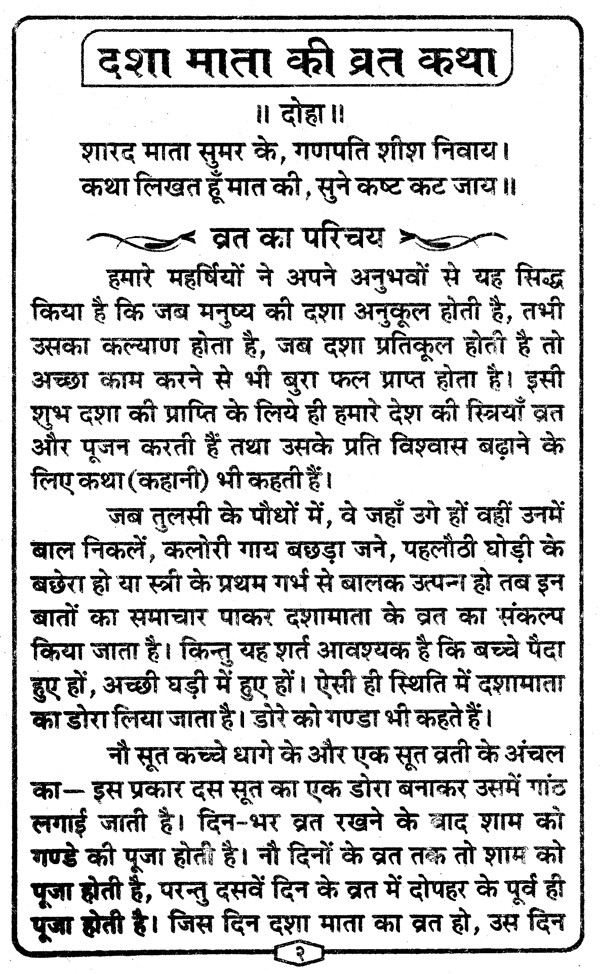 दशा माता की व्रत कथा
॥ दोहा ॥
शारद माता सुमर के, गणपति शीश निवाय।
कथा लिखत हूँ मात की, सुने कष्ट कट जाय॥
व्रत का परिचय
हमारे महर्षियों ने अपने अनुभवों से यह सिद्ध
किया है कि जब मनुष्य की दशा अनुकूल होती है, तभी
उसका कल्याण होता है, जब दशा प्रतिकूल होती है तो
अच्छा काम करने से भी बुरा फल प्राप्त होता है। इसी
शुभ दशा की प्राप्ति के लिये ही हमारे देश की स्त्रियाँ व्रत
और पूजन करती हैं तथा उसके प्रति विश्वास बढ़ाने के
लिए कथा (कहानी) भी कहती हैं।
जब तुलसी के पौधों में, वे जहाँ उगे हों वहीं उनमें
बाल निकलें, कलोरी गाय बछड़ा जने, पहलौठी घोड़ी के
बछेरा हो या स्त्री के प्रथम गर्भ से बालक उत्पन्न हो तब इन
बातों का समाचार पाकर दशामाता के व्रत का संकल्प
किया जाता है। किन्तु यह शर्त आवश्यक है कि बच्चे पैदा
हुए हों, अच्छी घड़ी में हुए हों। ऐसी ही स्थिति में दशामाता
का डोरा लिया जाता है। डोरे को गण्डा भी कहते हैं।
नौ सूत कच्चे धागे के और एक सूत व्रती के अंचल
का— इस प्रकार दस सूत का एक डोरा बनाकर उसमें गांठ
लगाई जाती है। दिन-भर व्रत रखने के बाद शाम को
गण्डे की पूजा होती है। नौ दिनों के व्रत तक तो शाम को
पूजा होती है, परन्तु दसवें दिन के व्रत में दोपहर के पूर्व ही
पूजा होती है। जिस दिन दशा माता का व्रत हो, उस दिन
२